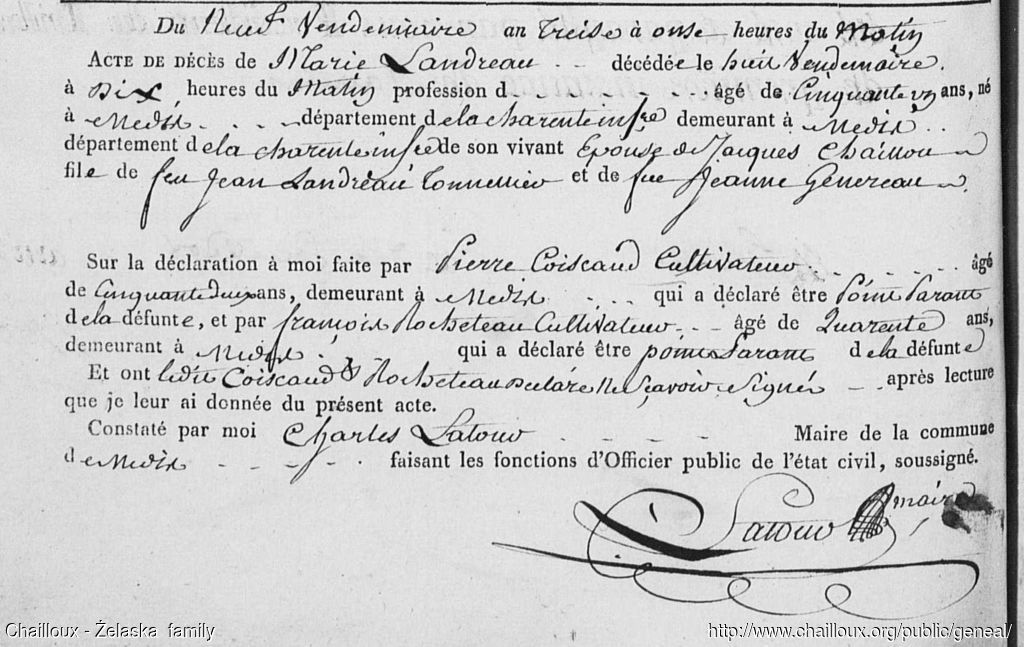 Du Neuf Vendemiaire an Treise à onse heures du Matin
ACTE DE DÉCÈS de Marie Landreau décédée le huit Vendemaire.
à Dix heures du Matin profession d - - - - - - - âgé de Cinquante un ans, né
à Medis - - - département de la charente infre demeurant à Medis
département de la charente infre de son vivant Epouse de Jacques Chaillou
file de feu Jean Landreau Tonnellier et de fue Jeanne Genereau
Sur la déclaration à moi faite par Pierre Coiscaud Cultivateur - - - - - âgé
de Cinquante deux ans, demeurant à Medis - - - qui a déclaré être Point Parant
de la défunte, et par françois Rocheteau Cultivateur - - âgé de Quarente ans,
demeurant à Medis qui a déclaré être point Parant de la défunte
Et ont ledit Coiscaud & Rocheteau declare Ne Sçavoir Signer - - après lecture
que je leur ai donnée du présent acte.
Constaté par moi Charles Latour - - - - Maire de la commune
de Medis - - - - faisant les fonctions d'Officier public de l'état civil, soussigné.
Latour maire
Chailloux - Żelaska family
http://www.chailloux.org/public/geneal/